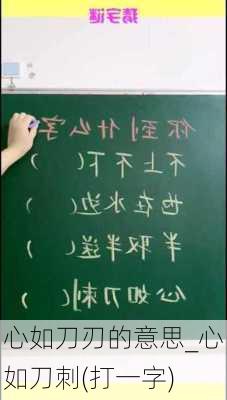 猜字谜
你到什么字
不上不下( )
也在水边( )
半取半送( )
心如刀刺( )
心如刀刃的意思_心
如刀刺(打一字)